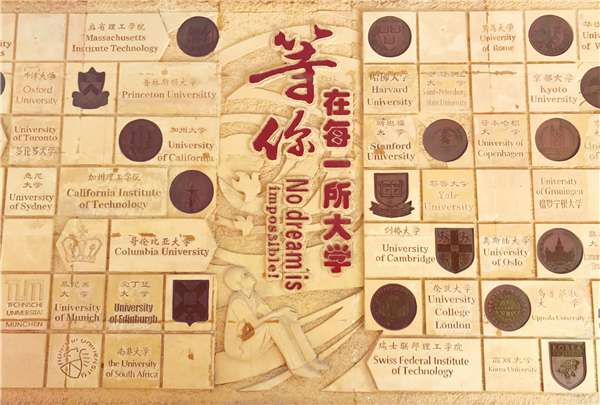 麻省理工学院
Massachusetts
Institute Technology
牛津大学
Oxford
University
普林斯顿大学
Princeton Universitty
University
of Toronto
多伦多大学
加州大学
University
of California
悉尼
大学
University
of Sydney
加州理工学院
California Institute
of Technology
哥伦比亚大学
Columbia University
TECHNISCHE
UNIVERSITÄT
MÜNCHEN
慕尼黑
大学
University
of Munich
爱丁堡
大学
University
of Edinburgh
南非大学
the University
of South Africa
等你
在每一所大学
No dream is
impossible!
罗马大学
University
of Rome
哈佛大学
Harvard
University
Saint-Petersburg
State University
京都大学
Kyoto
University
斯坦福
大学
Stanford
University
哥本哈根
大学
University of
Copenhagen
耶鲁大学
Yale
University
University
of Groningen
格罗宁根大学
剑桥大学
University
of Cambridge
奥斯陆大学
University
of Oslo
伦敦大学
University
College
London
乌普萨拉
大学
Uppsala University
瑞士联邦理工学院
Swiss Federal Institute
of Technology
高丽大学
Korea University
KOREA